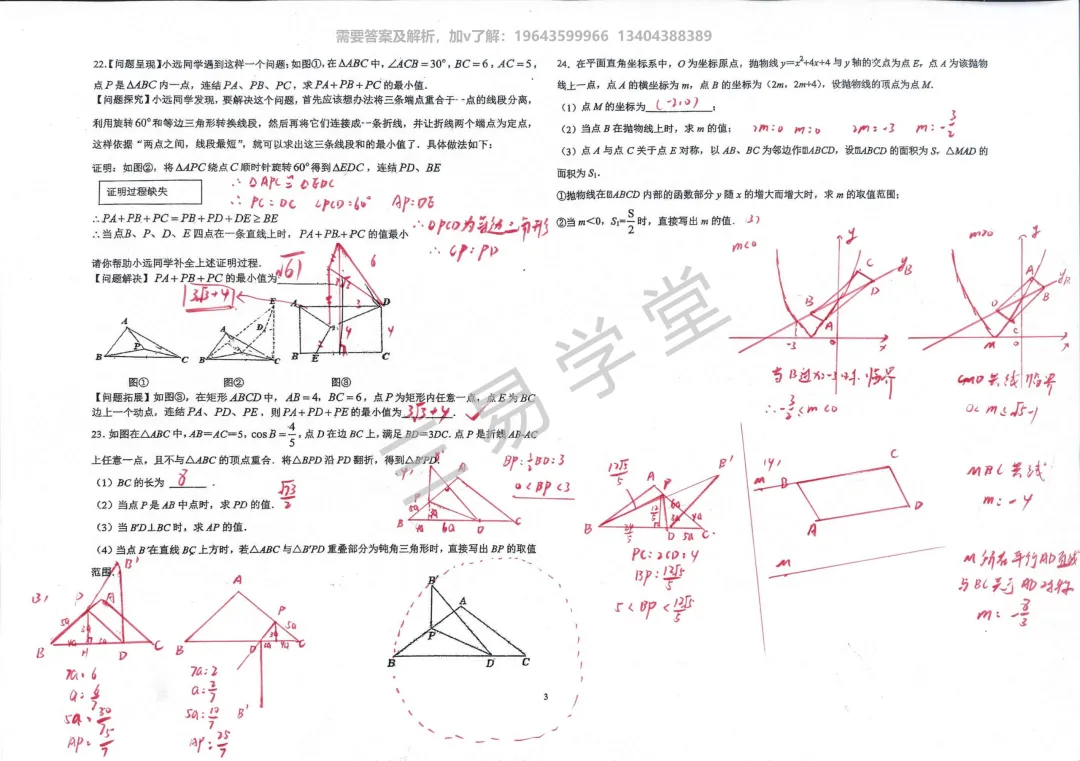 需要答案及解析，加v了解：19643599966 13404388389
22.【问题呈现】小远同学遇到这样一个问题：如图①,在△ABC中，∠ACB=30°，BC=6，AC=5，
点P是△ABC内一点，连结PA、PB、PC，求PA+PB+PC的最小值.
【问题探究】小远同学发现，要解决这个问题，首先应该想办法将三条端点重合于一点的线段分离，
利用旋转60°和等边三角形转换线段，然后再将它们连接成一条折线，并让折线两个端点为定点，
这样依据“两点之间，线段最短”，就可以求出这三条线段和的最小值了．具体做法如下：
证明：如图②，将△APC绕点C顺时针旋转60°得到△EDC，连结PD、BE
证明过程缺失
∴△APC≌△EDC
∴PC=DC ∠PCD=60° AP=DE
∴PA+PB+PC=PB+PD+DE≥BE
∴△PCD为等边三角形
∴当点B、P、D、E四点在一条直线上时，PA+PB+PC的值最小
∴CP=PD
请你帮助小远同学补全上述证明过程.
【问题解决】PA+PB+PC的最小值为 √61
3√3+4
图① 图② 图③
【问题拓展】如图③，在矩形ABCD中，AB=4，BC=6，点P为矩形内任意一点，点E为BC
边上一个动点，连结PA、PD、PE，则PA+PD+PE的最小值为 3√3+4 .
23. 如图在△ABC中，AB=AC=5，cos B=4/5，点D在边BC上，满足BD=3DC. 点P是折线AB-AC
上任意一点，且不与△ABC的顶点重合．将△BPD沿PD翻折，得到△B'PD.
（1）BC的长为 8 .
（2）当点P是AB中点时，求PD的值. √73/2
（3）当B'D⊥BC时，求AP的值.
（4）当点B'在直线BC上方时，若△ABC与△B'PD重叠部分为钝角三角形时，直接写出BP的取值
范围.
(4)
BP=½BD=3
0<BP<3
B' P A 5a 3a 4a B H D C
(3)
7a=6
a=6/7
5a=30/7
AP=5/7
A P 5a 3a 4a B D C B'
7a=2
a=2/7
5a=10/7
AP=25/7
B' A P B D C
12√5/5
PC=2CD=4
BP=12√5/5
5<BP<12√5/5
3
24. 在平面直角坐标系中，O为坐标原点，抛物线y=x²+4x+4与y轴的交点为点E，点A为该抛物
线上一点，点A的横坐标为m，点B的坐标为（2m，2m+4），设抛物线的顶点为点M.
（1）点M的坐标为 (-2,0) ；
（2）当点B在抛物线上时，求m的值； 2m=0 m=0 2m=-3 m=-3/2
（3）点A与点C关于点E对称，以AB、BC为邻边作▱ABCD，设▱ABCD的面积为S，△MAD的
面积为S₁.
①抛物线在▱ABCD内部的函数部分y随x的增大而增大时，求m的取值范围；
②当m<0，S₁=S/2时，直接写出m的值.
3)
m<0
m>0
当B过x=-3时，临界
∴-3/2≤m<0
CMD共线临界
0<m≤√5-1
(4)
M B C D A
M
MBC共线
m=-4
M所在平行AD直线
与BC关于AD对称
m=-8/3
三易学堂